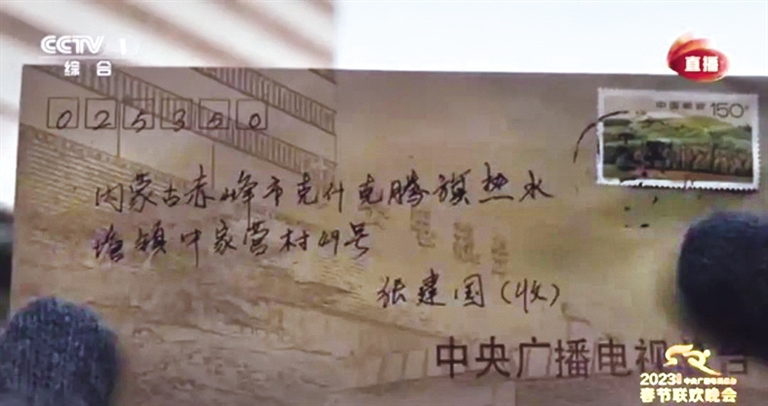 CCTV 1
综合
直播
025350
中国邮政 150
内蒙古赤峰市克什克腾旗热水
塘镇中家营村49号
张建国(收)
中央广播电视
2023
春节联欢晚会